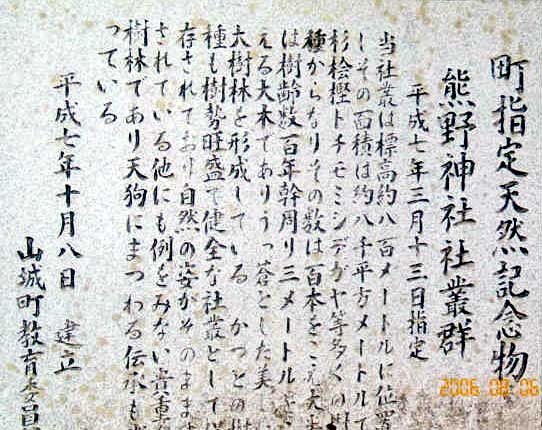 町指定天然記念物
熊野神社社叢群
平成七年三月十三日指定
当社叢は標高約八百メートルに位置
しその面積は約八千平方メートルで
杉桧樫トチモミシデガヤ等多くの樹
種からなりその数は百本をこえ大半
は樹齢数百年幹周り三メートルを
える大木でありうっ蒼とした美し
大樹林を形成している かつどの樹
種も樹勢旺盛で健全な社叢として保
存されており自然の姿がそのまま
されている他にも例をみない貴重
樹林であり天狗にまつわる伝承も
っている
平成七年十月八日 建立
山城町教育委員
2006 08 06